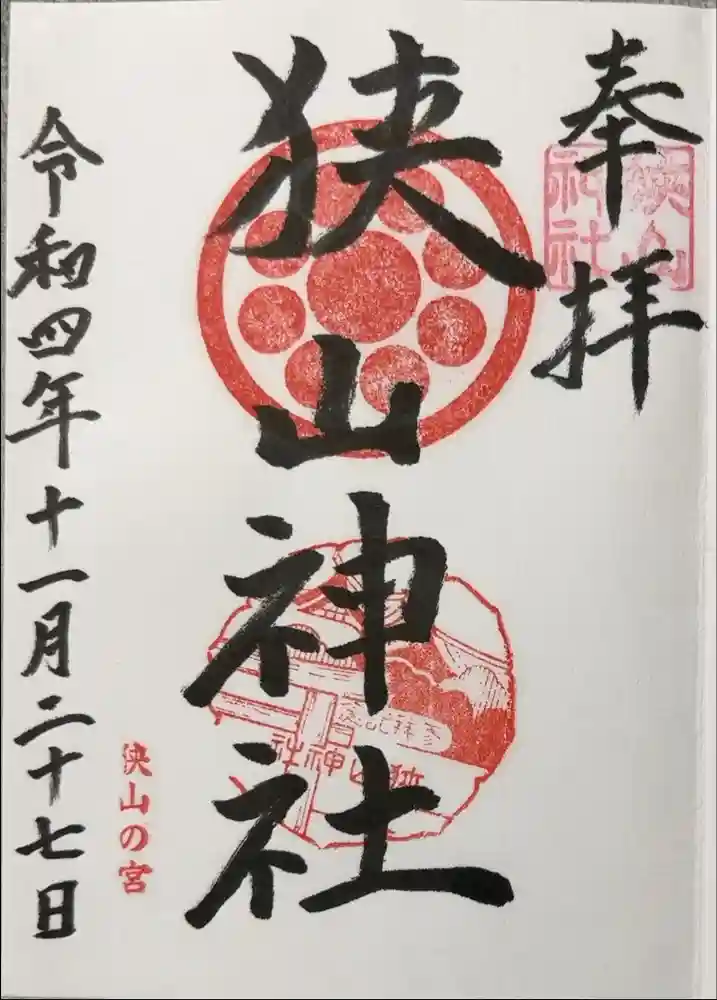 奉拝
狭山神社
狭山神社
参拝記念
狭山神社
狭山の宮
令和四年十一月二十七日